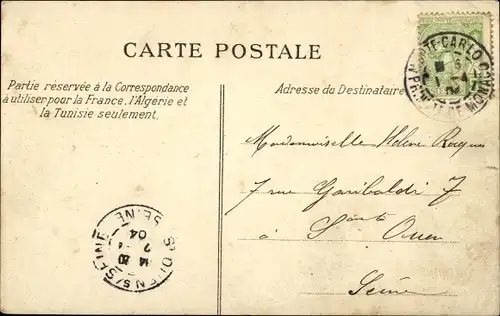 CARTE POSTALE
Partie réservée à la Correspondance
à utiliser pour la France, l'Algérie et
la Tunisie seulement.
Adresse du Destinataire
MONTE-CARLO
PRINCIPTE DE MONACO
Mademoiselle Hélène
7 rue Garibaldi 7
à Sainte Ouen
Seine
ST OUEN S/SEINE
SEINE
04